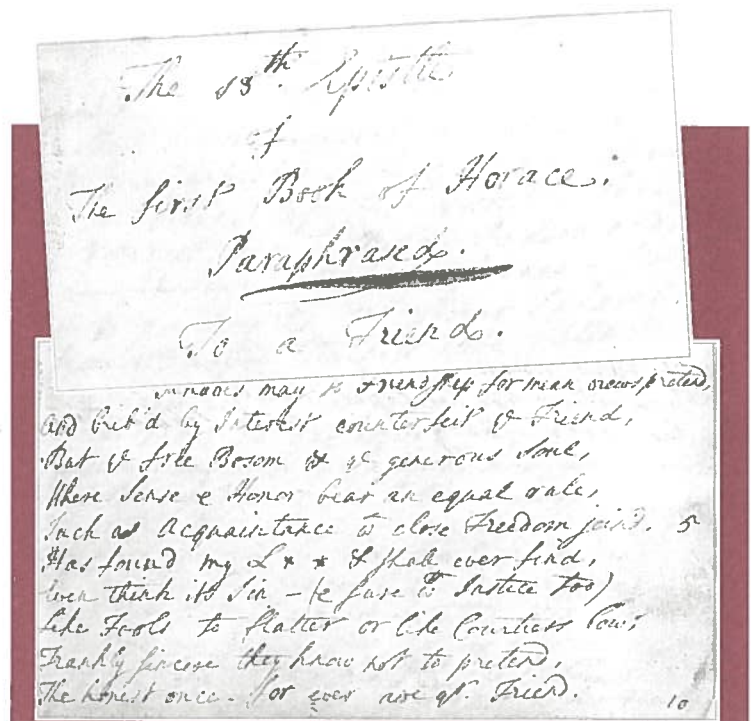 The 18th. Epistle
of
The first Book of Horace.
Paraphrased.
To a Friend.
may to Friendship for mean views pretend,
And brib'd by Interest counterfeit ye Friend,
But ye free Bosom & ye generous Soul,
Where Sense & Honor bear an equal rule,
Such as Acquaintance to close Freedom joind. 5
Has found my L * * & shall ever find,
Even think its Sin – (& sure to Justice too)
Like Fools to flatter or like Courtiers bow;
Frankly sincere they know not to pretend,
The honest once – for ever are yr. Friend. 10